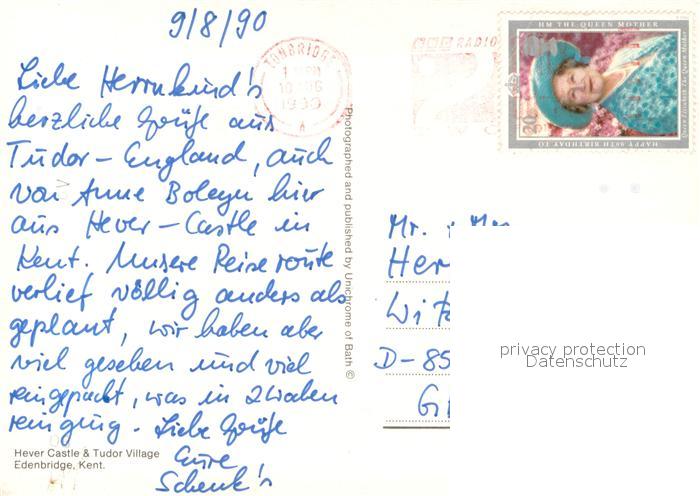 9/8/90
Liebe Herrnkind's
herzliche Grüße aus
Tudor-England, auch
von Anne Boleyn hier
aus Hever-Castle in
Kent. Unsere Reiseroute
verlief völlig anders als
geplant, wir haben aber
viel gesehen und viel
reingepackt, was in 2 Wochen
reinging. Liebe Grüße
Eure
Schenk's
Hever Castle & Tudor Village
Edenbridge, Kent.
Photographed and published by Unichrome of Bath ©
TONBRIDGE
10 AUG
1990
A
BBC RADIO
HM THE QUEEN MOTHER
Queen Elizabeth The Queen Mother
HAPPY 90TH BIRTHDAY TO
20
Mr. & Mrs
Her
Wit
D-85
G
privacy protection
Datenschutz